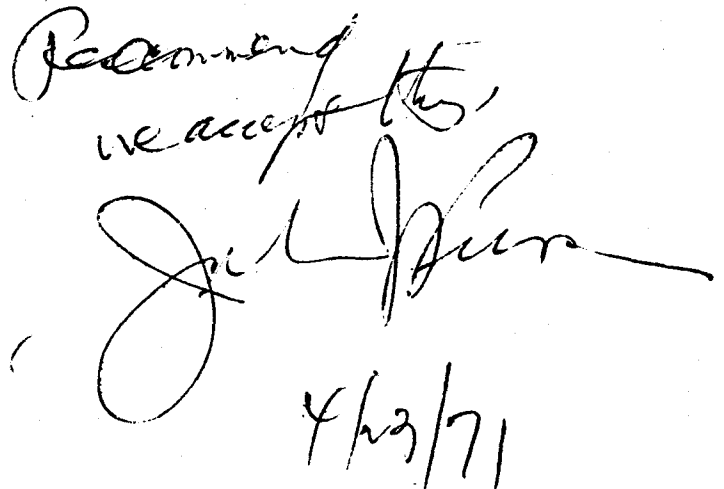 Recommend
we accept this.
John
4/23/71